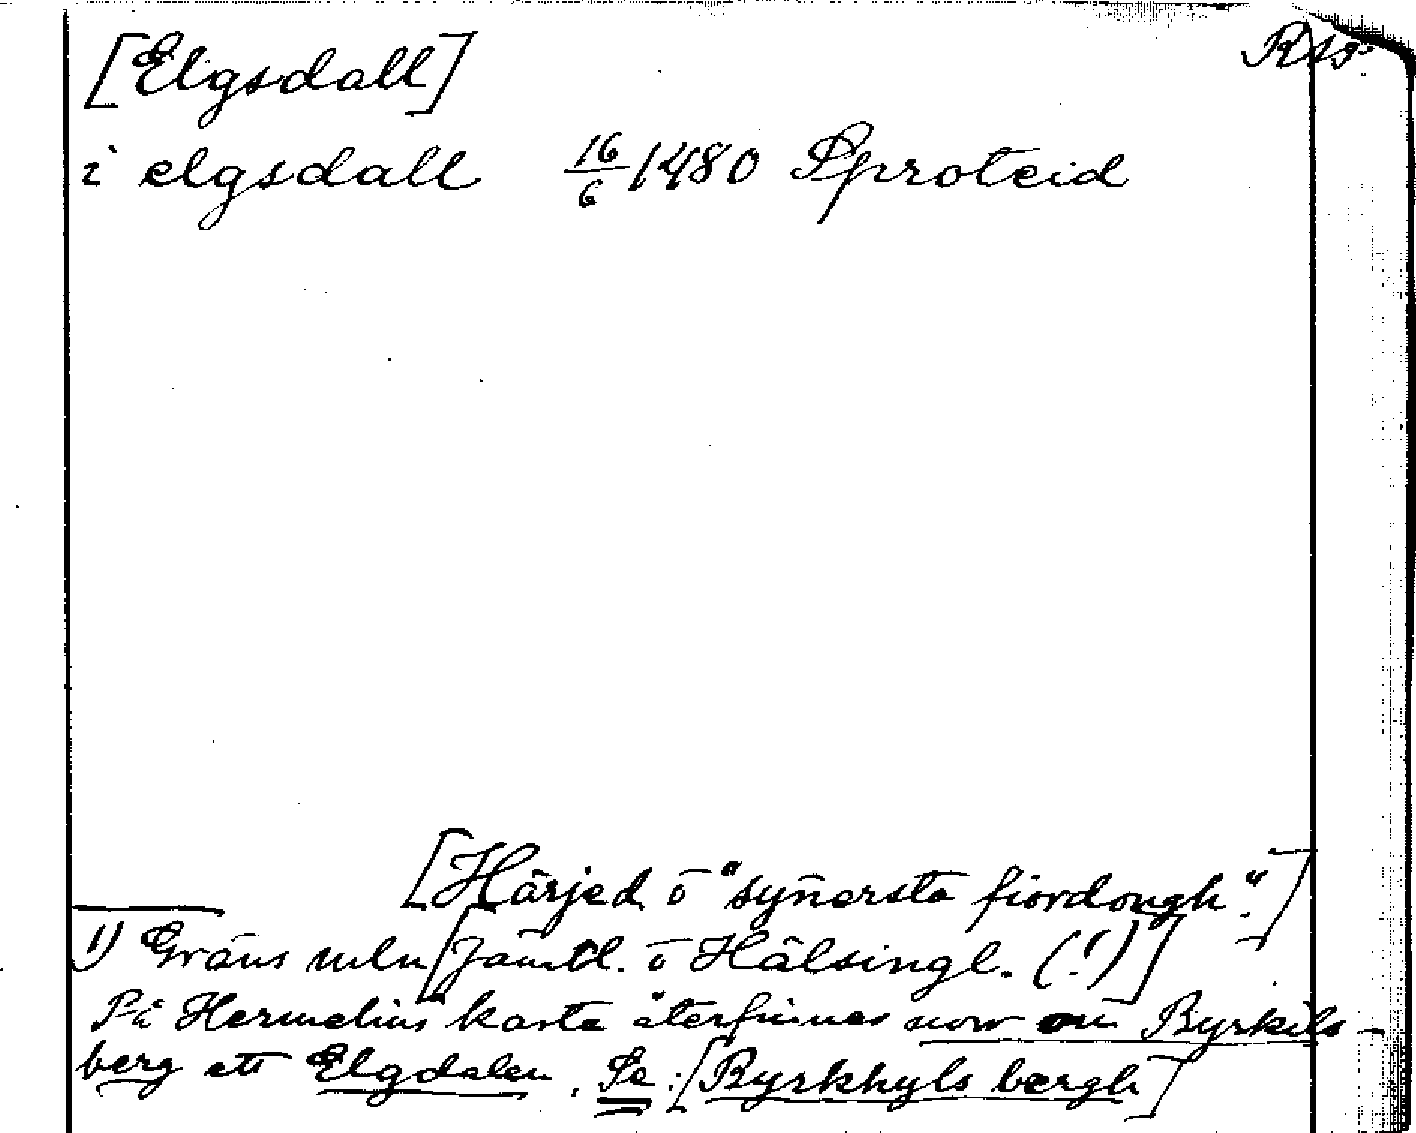 [Elgsdall]
i elgsdall 16/6 1480 Sproteid
[Härjed. o "synersta fiordongh".]
1) Gräns mln [Jämtl. o Hälsingl. (!)]
På Hermelins karta återfinnes norr om Byrkils-
berg ett Elgdalen. Se: [Byrkhyls bergh]